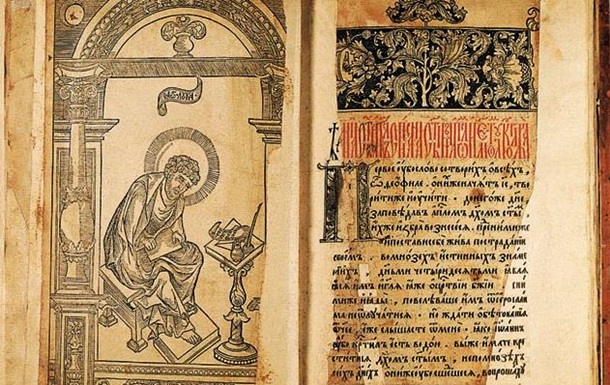 Первое ꙋбо слово сотворихъ о всѣхъ,
ѡ ѳеофиле. о нихже начатъ іс, тво
рити же и ꙋчити. до негоже дне
заповѣдавъ апломъ дхомъ сты,
ихже избра вознесесѧ. пред нимиже
и постави себе жива по страданїи
своемъ. во мнозѣхъ истинныхъ знаме
нїихъ. дньми четыридесѧтьми ꙗвлѧѧ
сѧ имъ. и глѧ ꙗже о црствїи бжїи. с ни
миже и ꙗдыи, повелѣваше имъ ѿ
не ѿлꙋчатисѧ. но ждати обѣтованїѧ
отче, еже слышасте ѿ мене. ꙗко іѡаннъ
ꙋбо крстилъ есть водою. вы же имате кре
ститисѧ дхомъ стымъ, не по мнозѣхъ
сихъ днехъ. они же ꙋбо сшедшесѧ, вопрошахꙋ